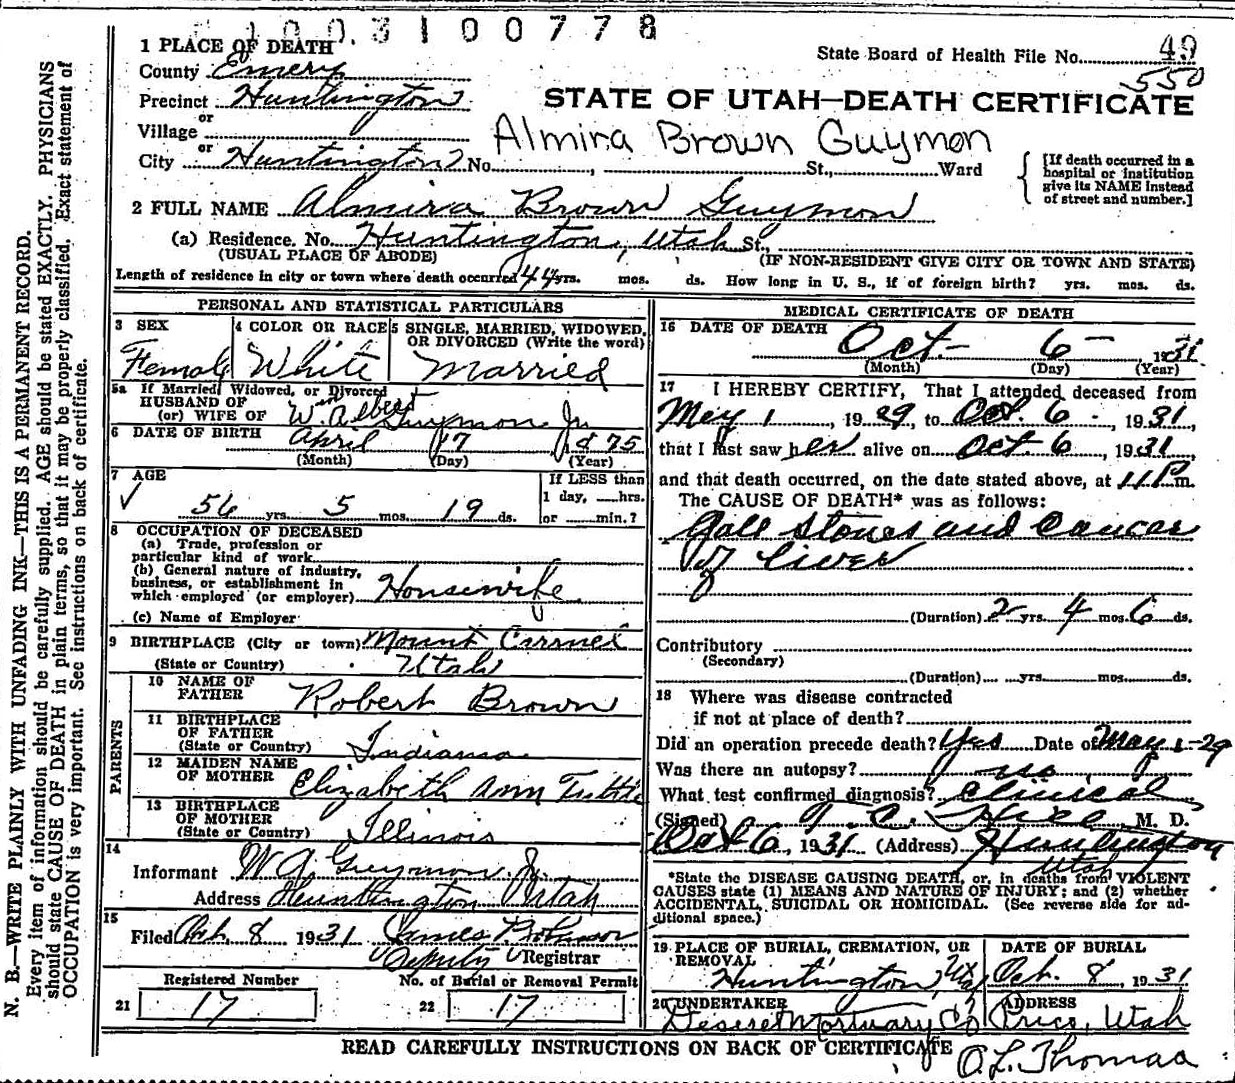 1003100778
1 PLACE OF DEATH
State Board of Health File No. 49
County Emery
550
Precinct Huntington
STATE OF UTAH—DEATH CERTIFICATE
or
Village
Almira Brown Guymon
or
City Huntington No. , St., Ward
[If death occurred in a hospital or institution give its NAME instead of street and number.]
2 FULL NAME Almira Brown Guymon
(a) Residence. No. Huntington, Utah St.,
(USUAL PLACE OF ABODE) (IF NON-RESIDENT GIVE CITY OR TOWN AND STATE)
Length of residence in city or town where death occurred 44 yrs. mos. ds. How long in U. S., if of foreign birth? yrs. mos. ds.
PERSONAL AND STATISTICAL PARTICULARS
3 SEX
Female
4 COLOR OR RACE
White
5 SINGLE, MARRIED, WIDOWED, OR DIVORCED (Write the word)
Married
5a If Married, Widowed, or Divorced
HUSBAND OF
(or) WIFE OF Wm Albert Guymon Jr.
6 DATE OF BIRTH April 17 1875
(Month) (Day) (Year)
7 AGE
56 yrs. 5 mos. 19 ds.
If LESS than
1 day, hrs.
or min.?
8 OCCUPATION OF DECEASED
(a) Trade, profession or
particular kind of work
(b) General nature of industry,
business, or establishment in
which employed (or employer) Housewife
(c) Name of Employer
9 BIRTHPLACE (City or town) Mount Carmel
(State or Country) Utah
PARENTS
10 NAME OF
FATHER Robert Brown
11 BIRTHPLACE
OF FATHER
(State or Country) Indiana
12 MAIDEN NAME
OF MOTHER Elizabeth Ann Tuttle
13 BIRTHPLACE
OF MOTHER
(State or Country) Illinois
14
Informant W A Guymon Jr
Address Huntington Utah
15
Filed Oct. 8 1931 James Robinson
Deputy Registrar
Registered Number No. of Burial or Removal Permit
21 17 22 17
MEDICAL CERTIFICATE OF DEATH
16 DATE OF DEATH
Oct- 6- , 1931
(Month) (Day) (Year)
17 I HEREBY CERTIFY, That I attended deceased from
May 1 , 1929, to Oct. 6 - , 1931,
that I last saw her alive on Oct. 6 , 1931,
and that death occurred, on the date stated above, at 11 P m.
The CAUSE OF DEATH* was as follows:
Gall Stones and Cancer
of liver
(Duration) 2 yrs. 4 mos. 6 ds.
Contributory
(Secondary)
(Duration) yrs. mos. ds.
18 Where was disease contracted
if not at place of death?
Did an operation precede death? Yes Date of May 1-29
Was there an autopsy? no
What test confirmed diagnosis? Clinical
(Signed) T. C. Hill, M. D.
Oct 6, 1931 (Address) Huntington
Utah
*State the DISEASE CAUSING DEATH, or, in deaths from VIOLENT
CAUSES state (1) MEANS AND NATURE OF INJURY; and (2) whether
ACCIDENTAL, SUICIDAL OR HOMICIDAL. (See reverse side for ad-
ditional space.)
19 PLACE OF BURIAL, CREMATION, OR
REMOVAL
Huntington,
DATE OF BURIAL
Oct. 8, 1931
20 UNDERTAKER
Deseret Mortuary Co
ADDRESS
Price, Utah
READ CAREFULLY INSTRUCTIONS ON BACK OF CERTIFICATE
O. L. Thomas
N. B.—WRITE PLAINLY WITH UNFADING INK—THIS IS A PERMANENT RECORD.
Every item of information should be carefully supplied. AGE should be stated EXACTLY. PHYSICIANS
should state CAUSE OF DEATH in plain terms, so that it may be properly classified. Exact statement of
OCCUPATION is very important. See instructions on back of certificate.